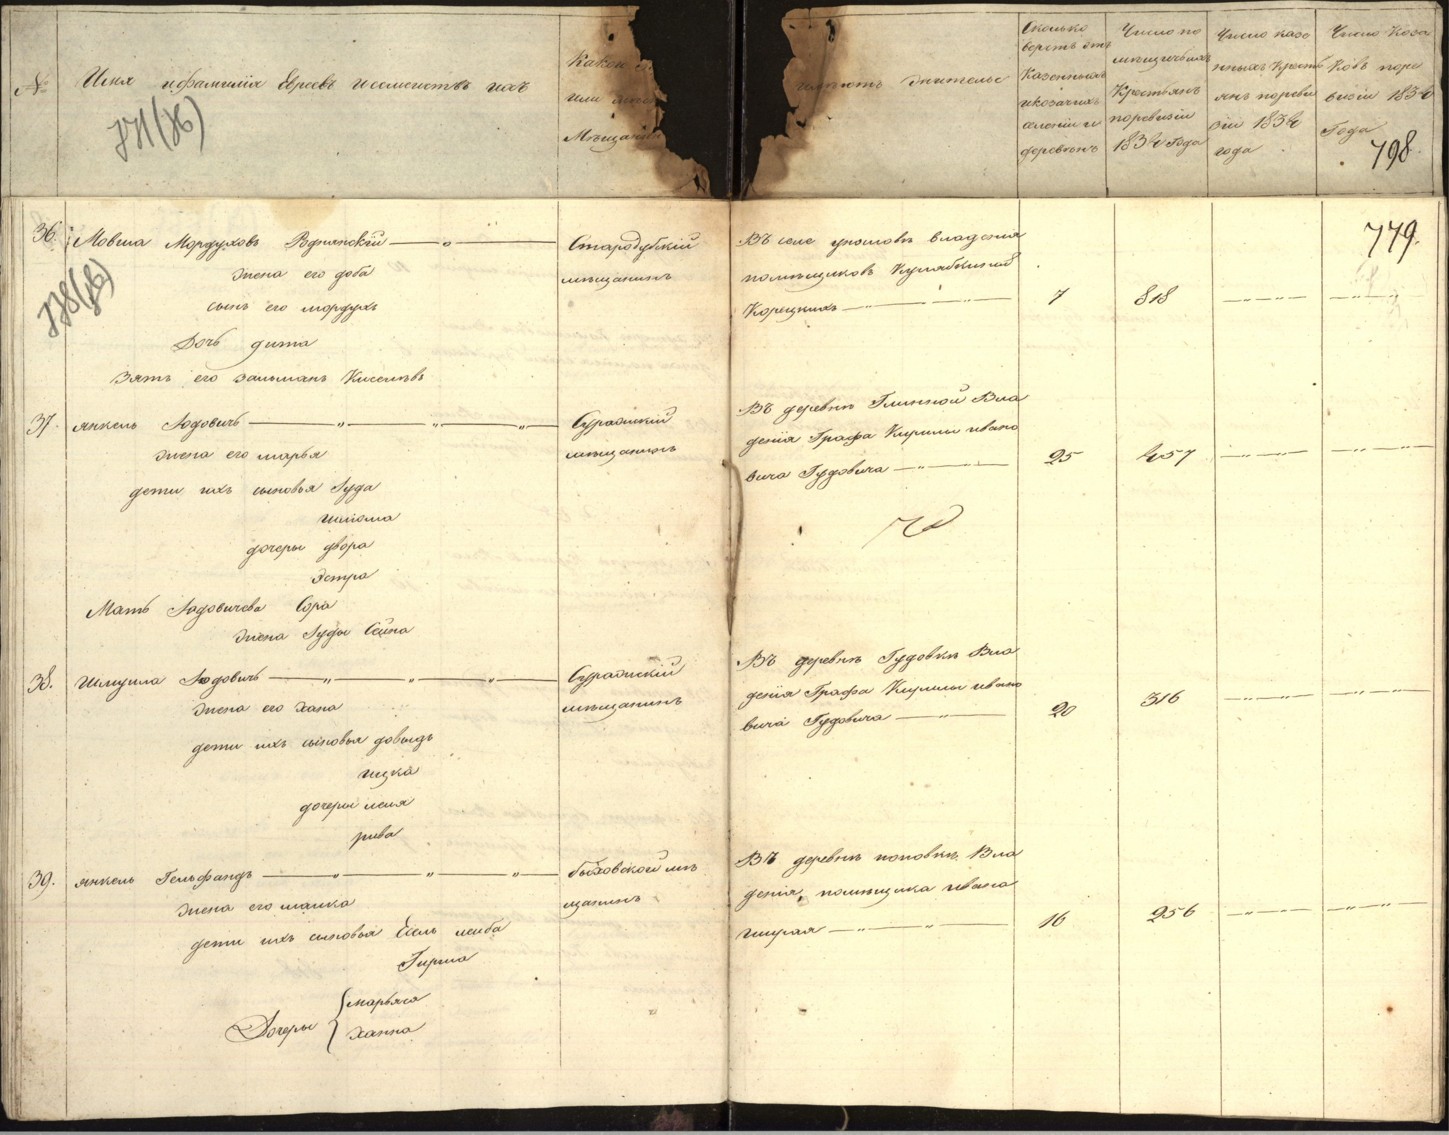 №
Имя и фамилія Евреевъ и семействъ ихъ
Какой
или
Мѣщанин
имѣютъ жительс
Сколько
верстъ отъ
Казенныхъ
и козачихъ
селеніи и
деревень
Число по
мѣщичьихъ
Крестьянъ
поревизіи
1834 Года
Число казе
нныхъ Кресть
янъ пореви
зіи 1834
года
Число Коза
ковъ поре
визіи 1834
Года
798
771(об)
778(об)
779.
36. Мовша Мордуховъ Руднянскій
жена его доба
сынъ его мордухъ
Дочь дита
Зять его зальманъ Киселевъ
Стародубскій
мѣщанинъ
Въ селе владенія
помѣщиковъ
Корецкихъ
7 818
37. янкель Юдовичь
жена его марья
дети ихъ сыновья Іуда
шлома
дочеры двора
эстра
Мать Юдовичева Сора
жена Іуды Сейна
Суражскій
мѣщанинъ
Въ деревнѣ Глинной Вла
денія Графа Кирилы ивано
вича Гудовича
25 457
38. Шмуила Юдовичь
жена его хана
дети ихъ сыновья довыдъ
ицка
дочеры леия
рива
Суражскій
мѣщанинъ
Въ деревнѣ Гудовкѣ Вла
денія Графа Кирилы ивано
вича Гудовича
20 316
39. янкель Гельфандъ
жена его малка
дети ихъ сыновья Есель лейба
Гирша
Дочеры { марьяся
ханна
быховской мѣ
щанинъ
Въ деревнѣ поповкѣ Вла
денія, помѣщика ивана
ширая
16 256